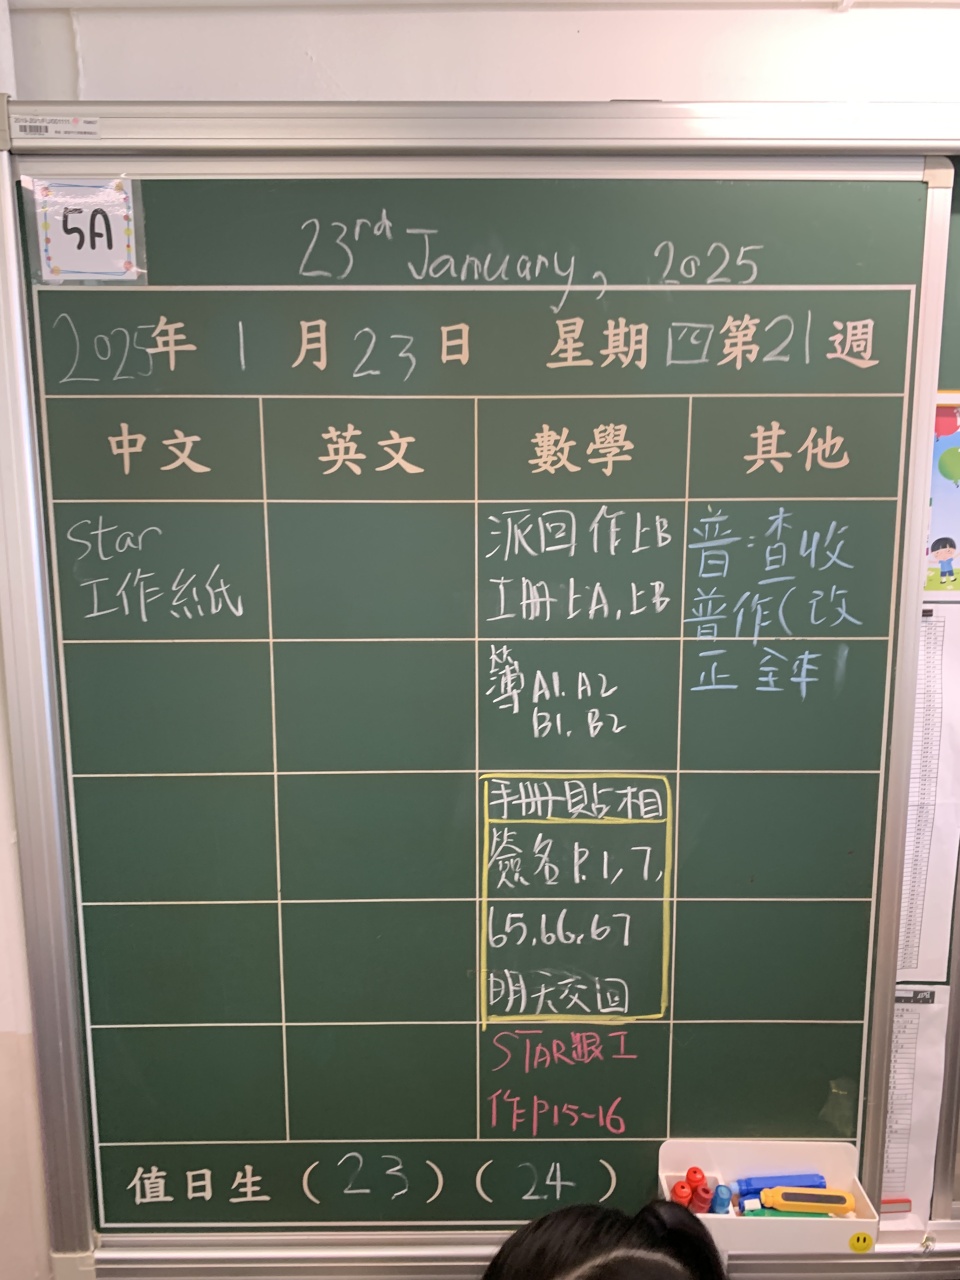 5A
23rd January, 2025
2025年 1 月 23 日 星期 四 第 21 週
中文 英文 數學 其他
Star
工作紙
派回作上B
工冊上A, 上B
簿 A1. A2
B1. B2
手冊貼相
簽名 P. 1, 7,
65, 66, 67
明天交回
STAR跟工
作P15-16
普:查收
普作(改
正
值日生 (23) (24)